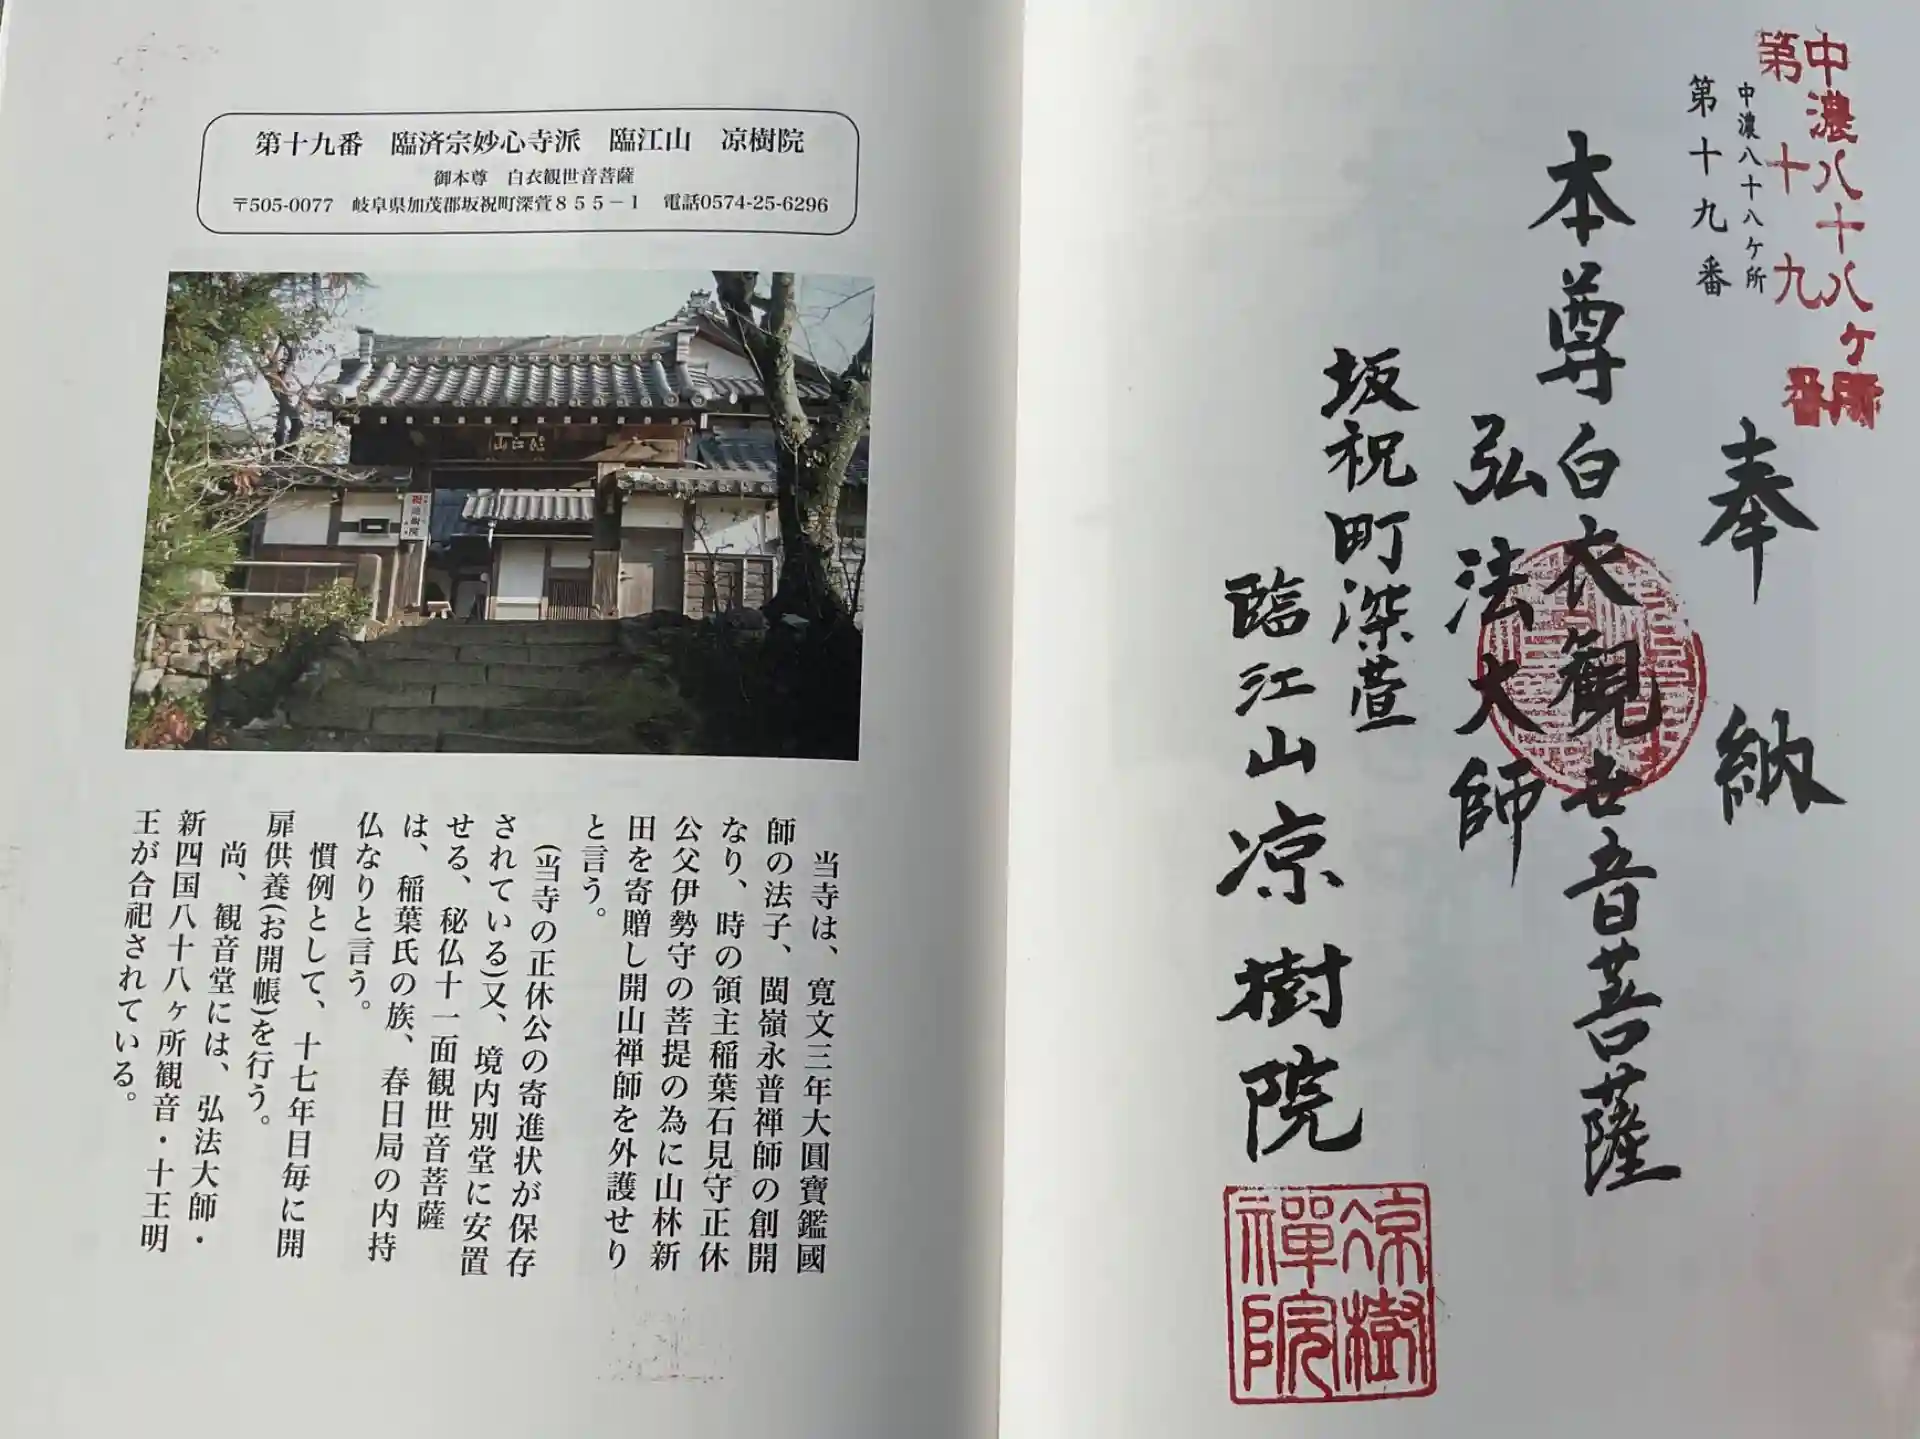 第十九番　臨済宗妙心寺派　臨江山　凉樹院
御本尊　白衣観世音菩薩
〒505-0077　岐阜県加茂郡坂祝町深萱８５５−１　電話0574-25-6296
臨江山
当寺は、寛文三年大圓寶鑑國
師の法子、閩嶺永普禅師の創開
なり、時の領主稲葉石見守正休
公父伊勢守の菩提の為に山林新
田を寄贈し開山禅師を外護せり
と言う。
(当寺の正休公の寄進状が保存
されている)又、境内別堂に安置
せる、秘仏十一面観世音菩薩
は、稲葉氏の族、春日局の内持
仏なりと言う。
慣例として、十七年目毎に開
扉供養(お開帳)を行う。
尚、観音堂には、弘法大師・
新四国八十八ヶ所観音・十王明
王が合祀されている。
中濃八十八ヶ所
第十九番
中濃八十八ケ所
第十九番
奉納
本尊白衣観世音菩薩
弘法大師
坂祝町深萱
臨江山凉樹院
凉樹
禅院